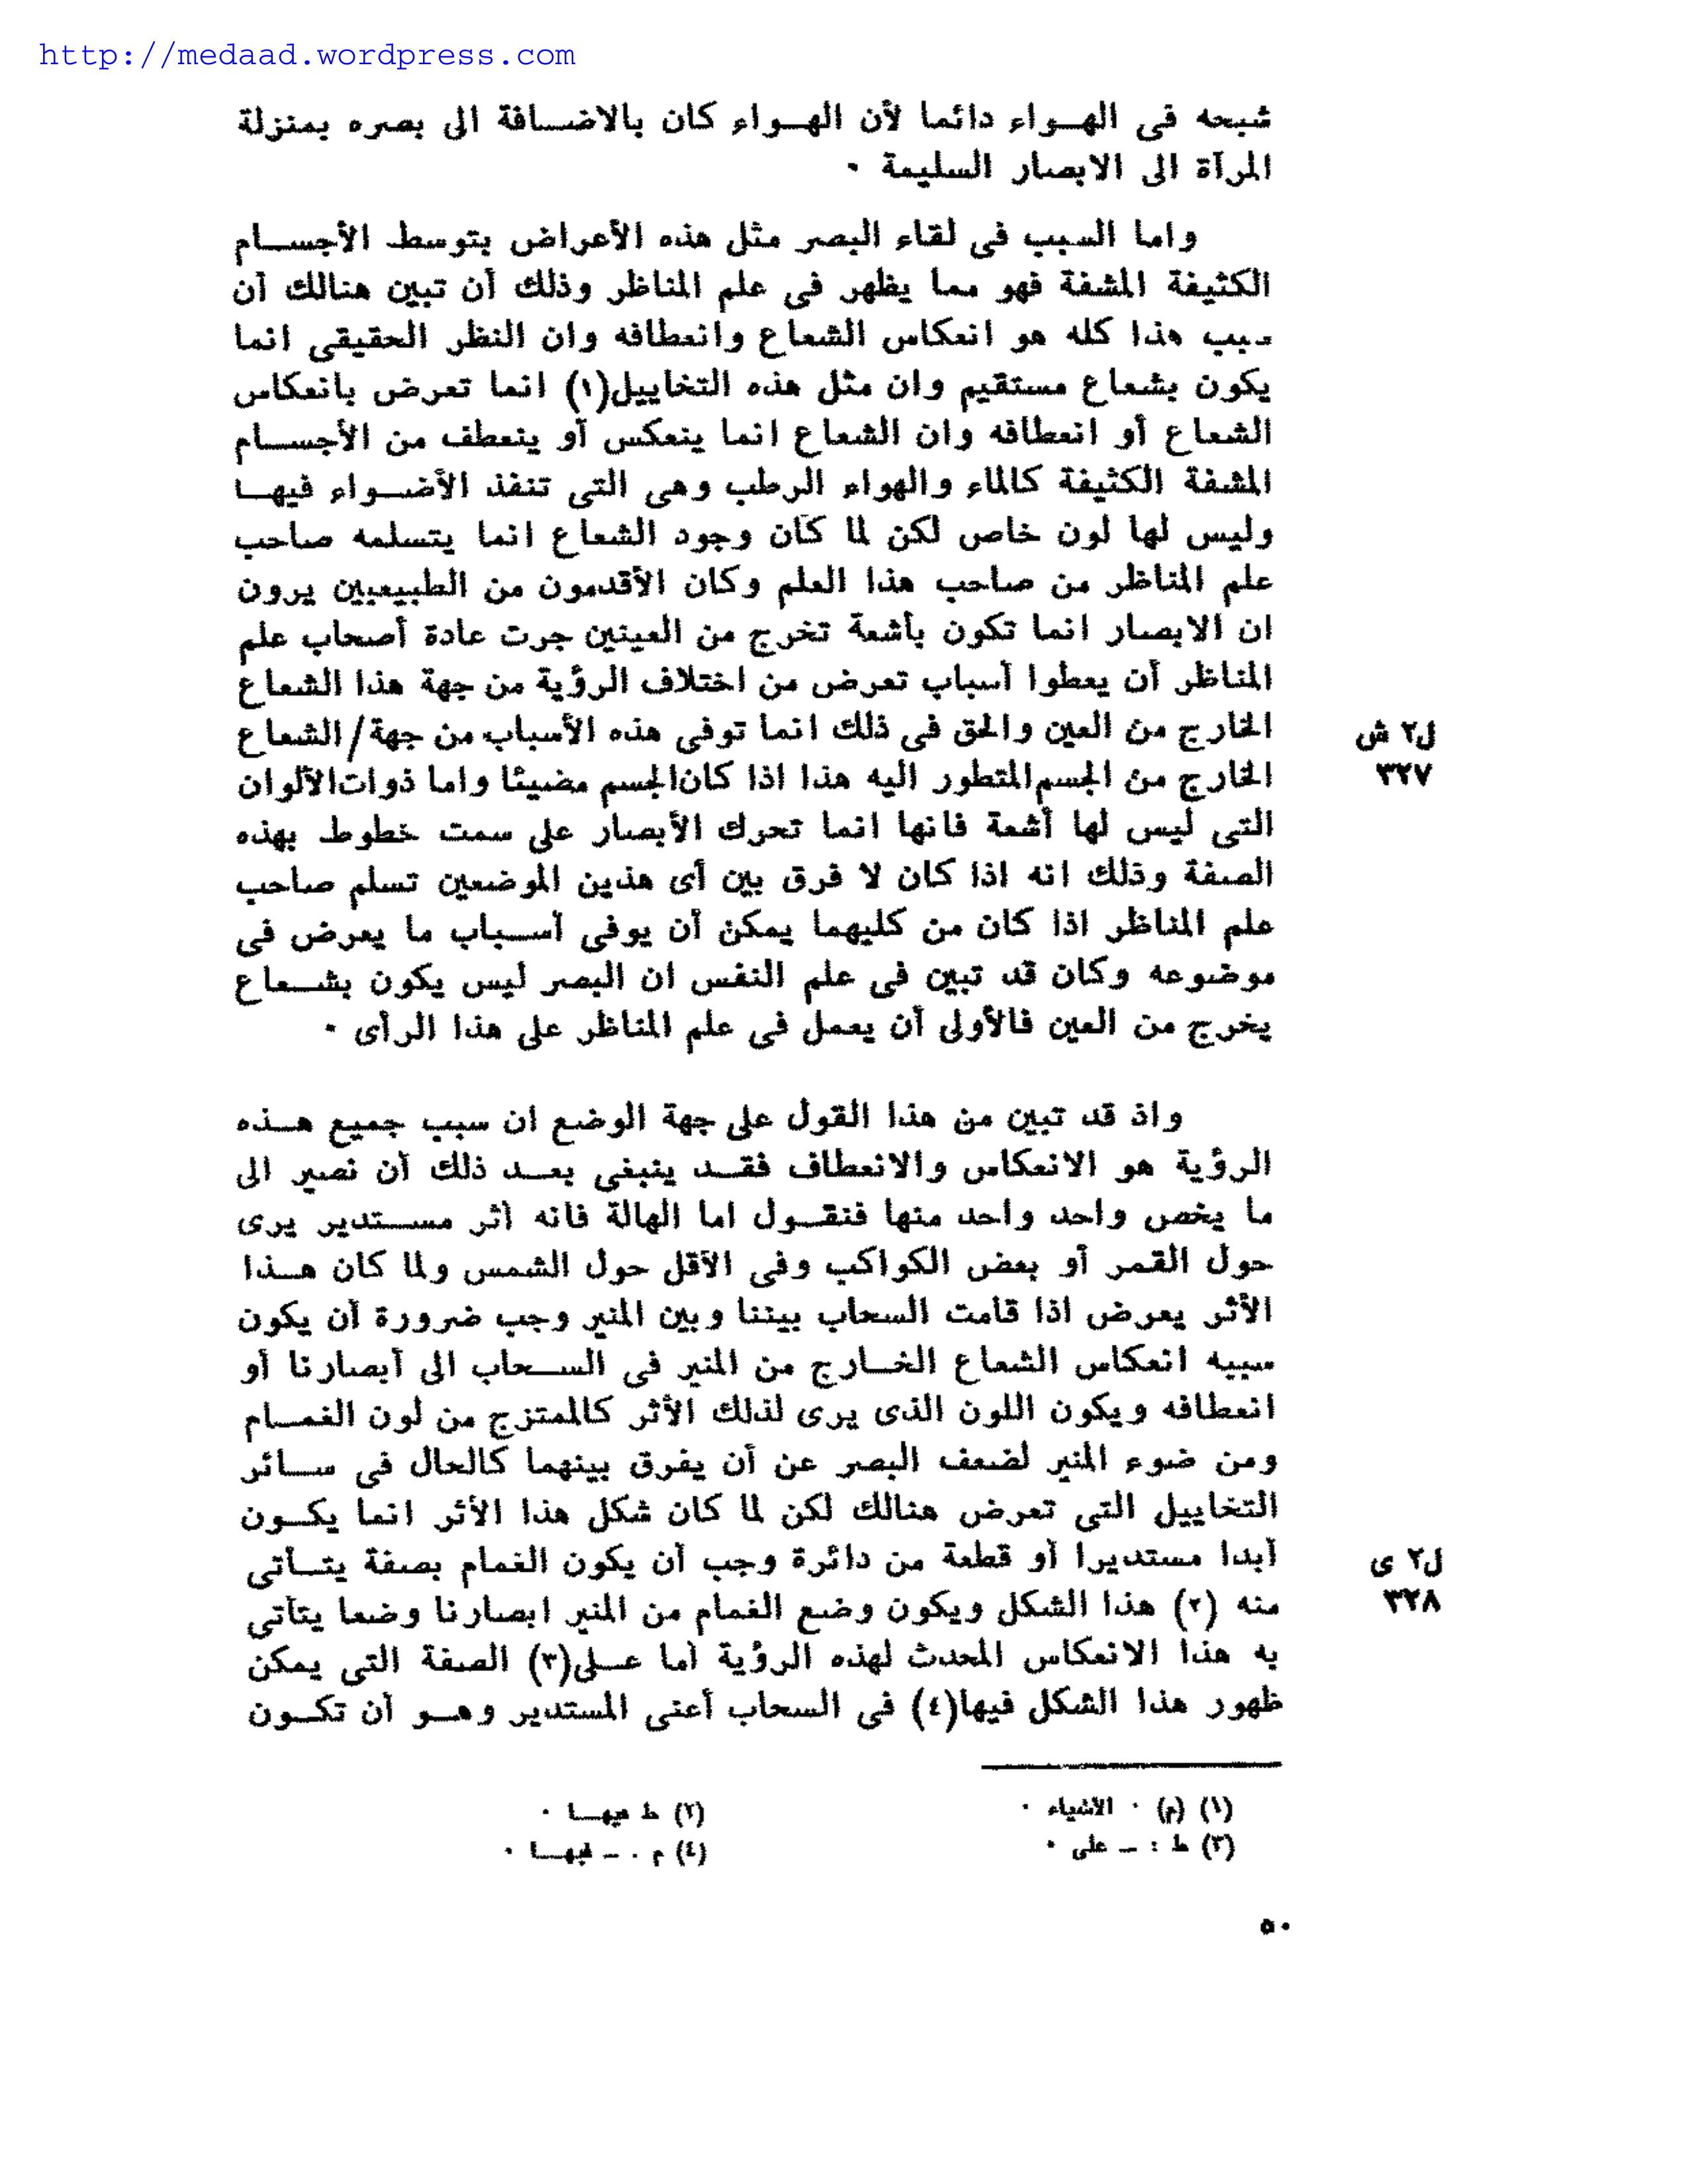 http://medaad.wordpress.com
شبحه فى الهواء دائما لأن الهواء كان بالاضافة الى بصره بمنزلة
المرآة الى الابصار السليمة ٠
واما السبب فى لقاء البصر مثل هذه الأعراض بتوسط الأجسام
الكثيفة المشفة فهو مما يظهر فى علم المناظر وذلك أن تبين هنالك أن
سبب هذا كله هو انعكاس الشعاع وانعطافه وان النظر الحقيقى انما
يكون بشعاع مستقيم وان مثل هذه التخاييل(١) انما تعرض بانعكاس
الشعاع أو انعطافه وان الشعاع انما ينعكس أو ينعطف من الأجسام
المشفة الكثيفة كالماء والهواء الرطب وهى التى تنفذ الأضواء فيها
وليس لها لون خاص لكن لما كان وجود الشعاع انما يتسلمه صاحب
علم المناظر من صاحب هذا العلم وكان الأقدمون من الطبيعيين يرون
ان الابصار انما تكون بأشعة تخرج من العينين جرت عادة أصحاب علم
المناظر أن يعطوا أسباب تعرض من اختلاف الرؤية من جهة هذا الشعاع
الخارج من العين والحق فى ذلك انما توفى هذه الأسباب من جهة/الشعاع
ل٢ ش
٣٢٧
الخارج من الجسم المتطور اليه هذا اذا كان الجسم مضيئا واما ذوات الألوان
التى ليس لها أشعة فانها انما تحرك الأبصار على سمت خطوط بهذه
الصفة وذلك انه اذا كان لا فرق بين أى هذين الموضعين تسلم صاحب
علم المناظر اذا كان من كليهما يمكن أن يوفى أسباب ما يعرض فى
موضوعه وكان قد تبين فى علم النفس ان البصر ليس يكون بشعاع
يخرج من العين فالأولى أن يعمل فى علم المناظر على هذا الرأى ٠
واذ قد تبين من هذا القول على جهة الوضع ان سبب جميع هذه
الرؤية هو الانعكاس والانعطاف فقد ينبغى بعد ذلك أن نصير الى
ما يخص واحد واحد منها فنقول اما الهالة فانه أثر مستدير يرى
حول القمر أو بعض الكواكب وفى الأقل حول الشمس ولما كان هذا
الأثر يعرض اذا قامت السحاب بيننا وبين المنير وجب ضرورة أن يكون
سببه انعكاس الشعاع الخارج من المنير فى السحاب الى أبصارنا أو
انعطافه ويكون اللون الذى يرى لذلك الأثر كالممتزج من لون الغمام
ومن ضوء المنير لضعف البصر عن أن يفرق بينهما كالحال فى سائر
التخاييل التى تعرض هنالك لكن لما كان شكل هذا الأثر انما يكون
أبدا مستديرا أو قطعة من دائرة وجب أن يكون الغمام بصفة يتأتى
ل٢ ى
٣٢٨
منه (٢) هذا الشكل ويكون وضع الغمام من المنير ابصارنا وضعا يتأتى
به هذا الانعكاس المحدث لهذه الرؤية أما على(٣) الصفة التى يمكن
ظهور هذا الشكل فيها(٤) فى السحاب أعنى المستدير وهو أن تكون
(١) (م) ٠ الأشياء ٠
(٢) ط فيها ٠
(٣) ط : ــ على ٠
(٤) م ٠ ــ فيها ٠
٥٠